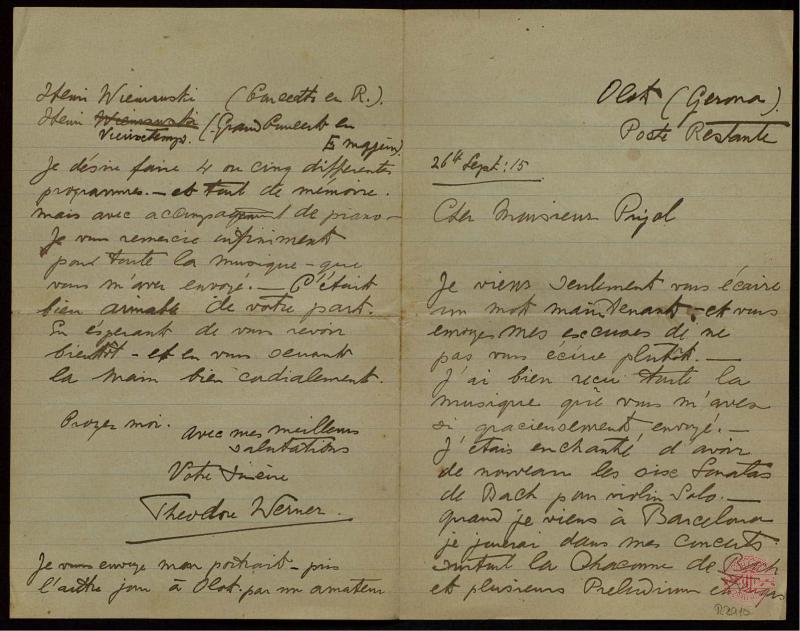 Olot (Gerona).
Poste Restante
26th Sept: 15.
Cher Monsieur Pujol
Je viens seulement vous écrire
un mot maintenant - et vous
envoyer mes excuses de ne
pas vous écrire plutôt. —
J'ai bien recu toute la
musique que vous m'avez
si gracieusement envoyé. —
J'étais enchanté d'avoir
de nouveau les six Sonatas
de Bach pour violin Solo. —
quand je viens à Barcelona
je jouerai dans mes concerts
surtout la Chaconne de Bach
et plusieurs Preludium
R.2915
Henri Wieniawski (Concerto en R.).
Henri Wieniawski (Grand Concert en
Vieuxtemps. E majeur)
Je désire faire 4 ou cinq differentes
programmes. - et tout de mémoire.
mais avec acompagnament de piano -
Je vous remercie infiniment
pour toute la musique - que
vous m'avez envoyé. - C'était
bien aimable de votre part.
En esperant de vous revoir
bientôt - et en vous serrant
la main bien cordialement.
Croyez moi.
avec mes meilleurs
salutations
Votre Sincère
Theodore Werner.
Je vous envoye mon portrait - pris
l'autre jour à Olot par un amateur